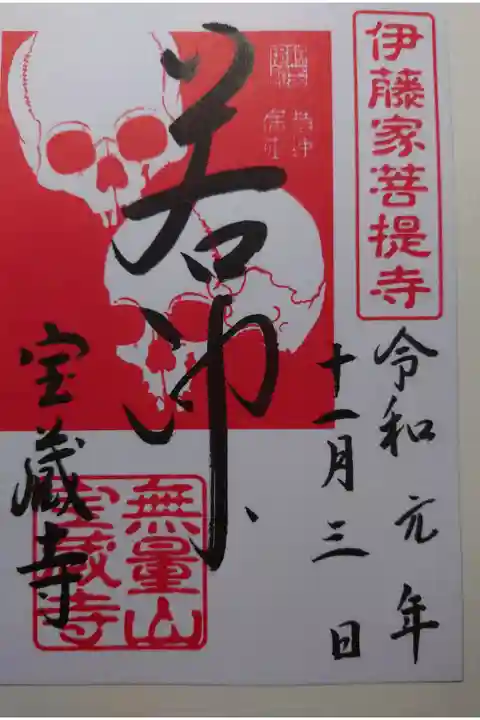 伊藤家菩提寺
令和元年
十一月三日
若冲
宝蔵寺
無量山
宝蔵寺